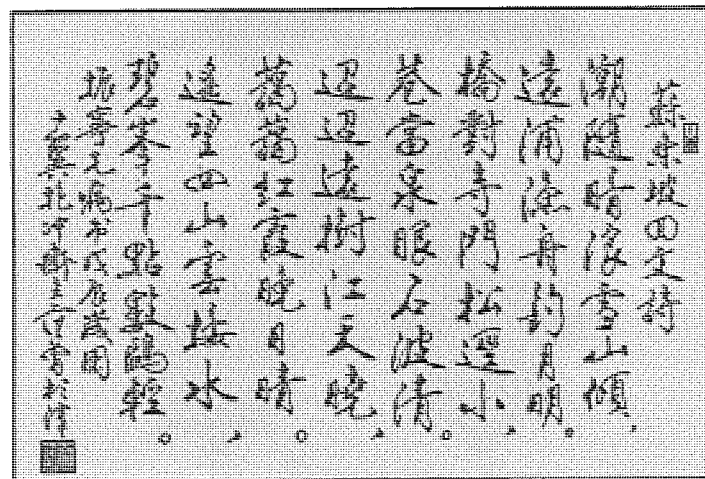 蘇東坡回文詩
潮隨暗浪雪山傾，
遠浦漁舟釣月明。
橋對寺門松逕小，
巷當泉眼石波清。
迢迢遠樹江天曉，
藹藹紅霞晚日晴。
遙望四山雲接水，
碧峯千點數鷗輕。
戊辰歲